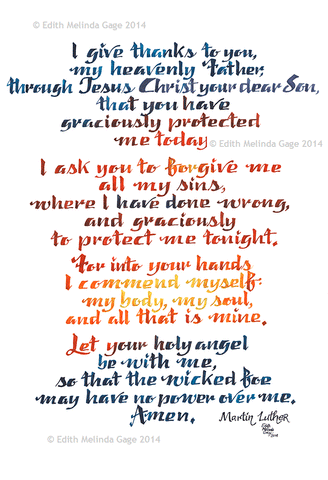 © Edith Melinda Gage 2014
I give thanks to you,
my heavenly Father,
through Jesus Christ your dear Son,
that you have
graciously protected
me today
© Edith Melinda Gage 2014
I ask you to forgive me
all my sins,
where I have done wrong,
and graciously
to protect me tonight.
For into your hands
I commend myself:
my body, my soul,
and all that is mine.
Let your holy angel
be with me,
so that the wicked foe
may have no power over me.
Amen.
Martin Luther
Edith Melinda Gage 2014
© Edith Melinda Gage 2014